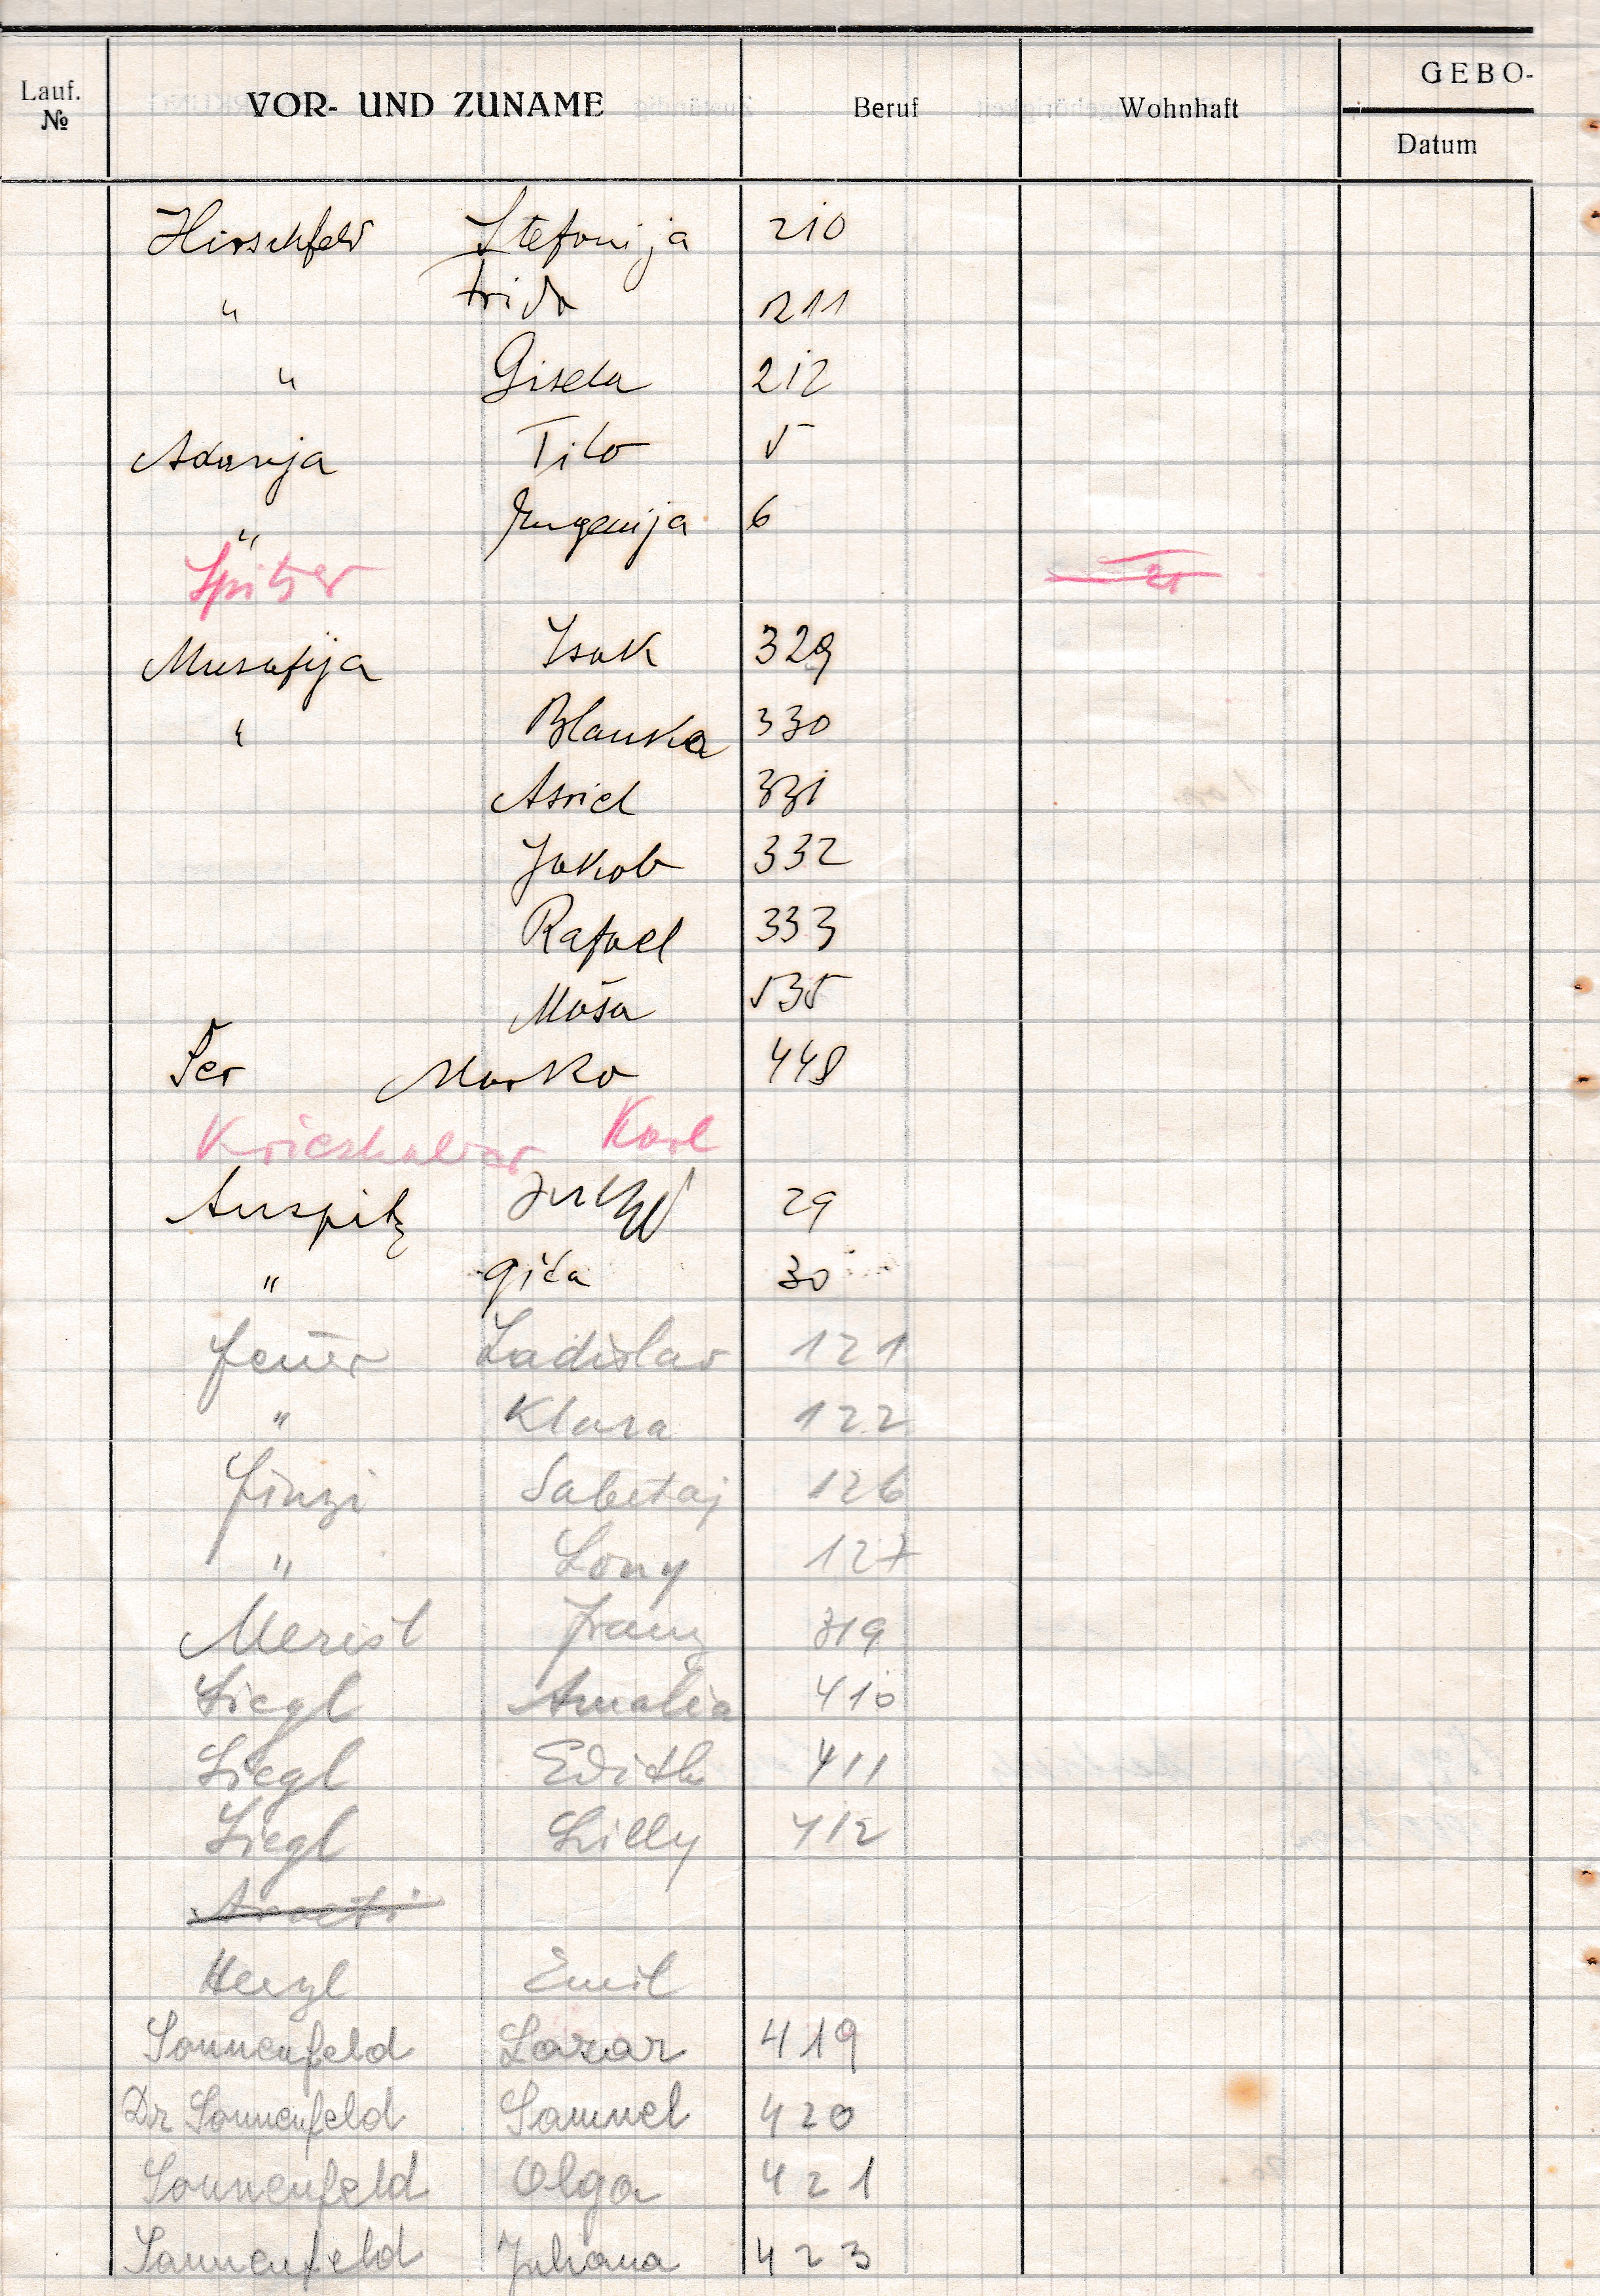 Lauf. №
VOR- UND ZUNAME
Beruf
Wohnhaft
GEBO-
Datum
Hirschfeld Stefanija 210
" Frida 211
" Gisela 212
Adanja Tito 5
" Jungenija 6
Spitzer
Musafija Isak 329
" Blanka 330
Asriel 331
Jakob 332
Rafael 333
Moša 535
Šer Marko 448
Karl
Auspitz 29
" Giza 30
Feuer Ladislav 121
" Klara 122
Finzi Sabetaj 126
" Lony 127
Franz 319
Siegl Amalia 410
Siegl Edith 411
Siegl Lilly 412
Herzl Emil
Sonnenfeld Lazar 419
Dr Sonnenfeld Samuel 420
Sonnenfeld Olga 421
Sonnenfeld Juliana 423